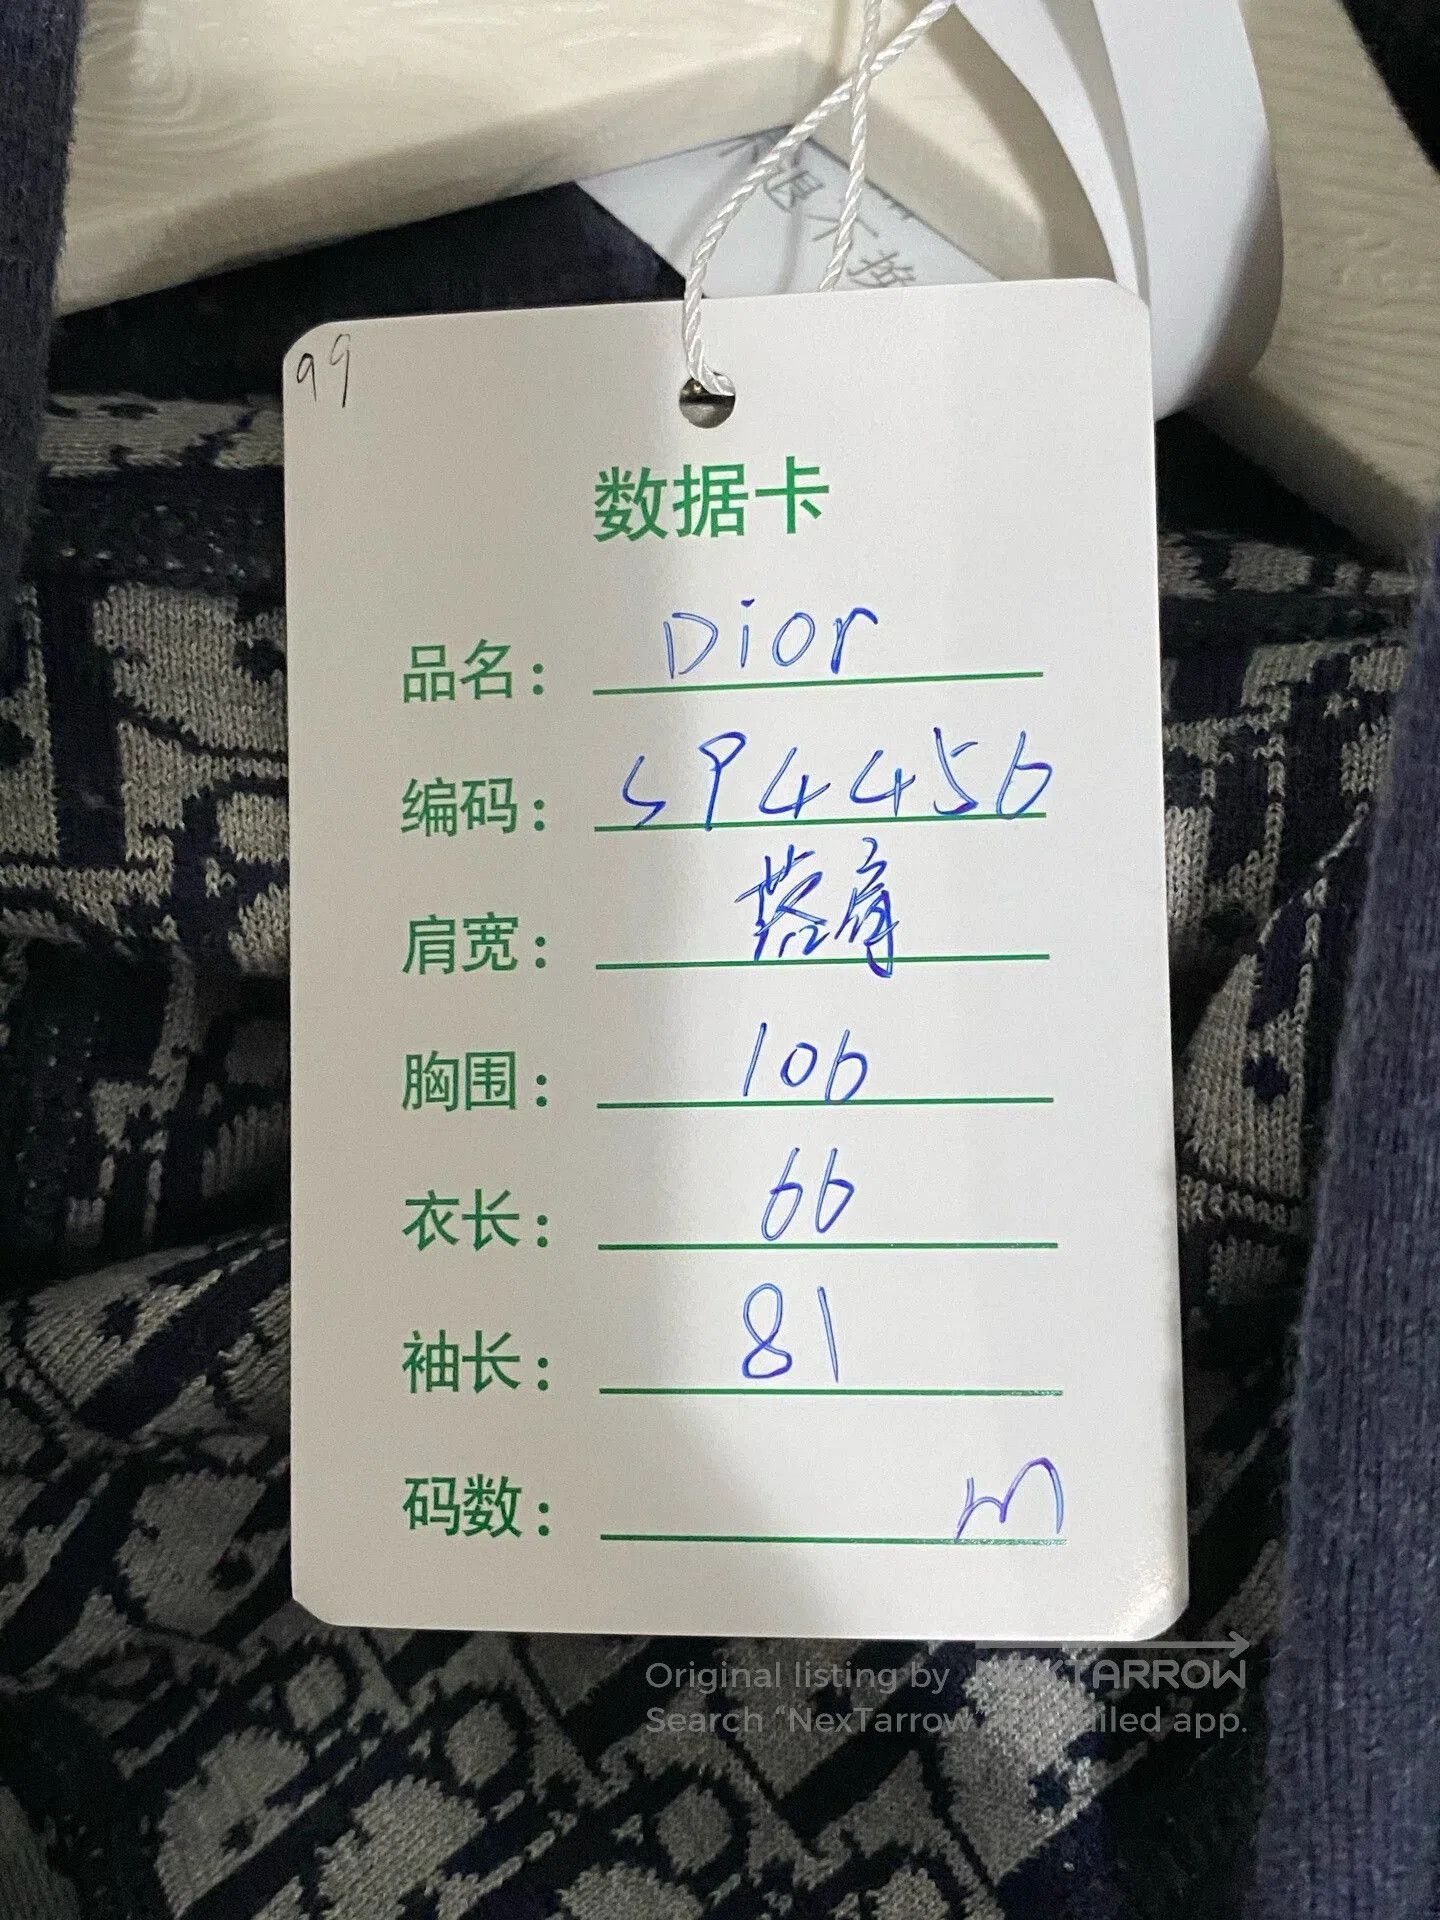 退不换
99
数据卡
品名: Dior
编码: SP4456
肩宽: 落肩
胸围: 106
衣长: 66
袖长: 81
码数: m
Original listing by NEXTARROW
Search "NexTarrow" app.